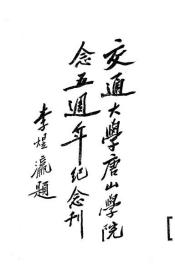 交通大學唐山學院
念五週年紀念刊
李煜瀛題